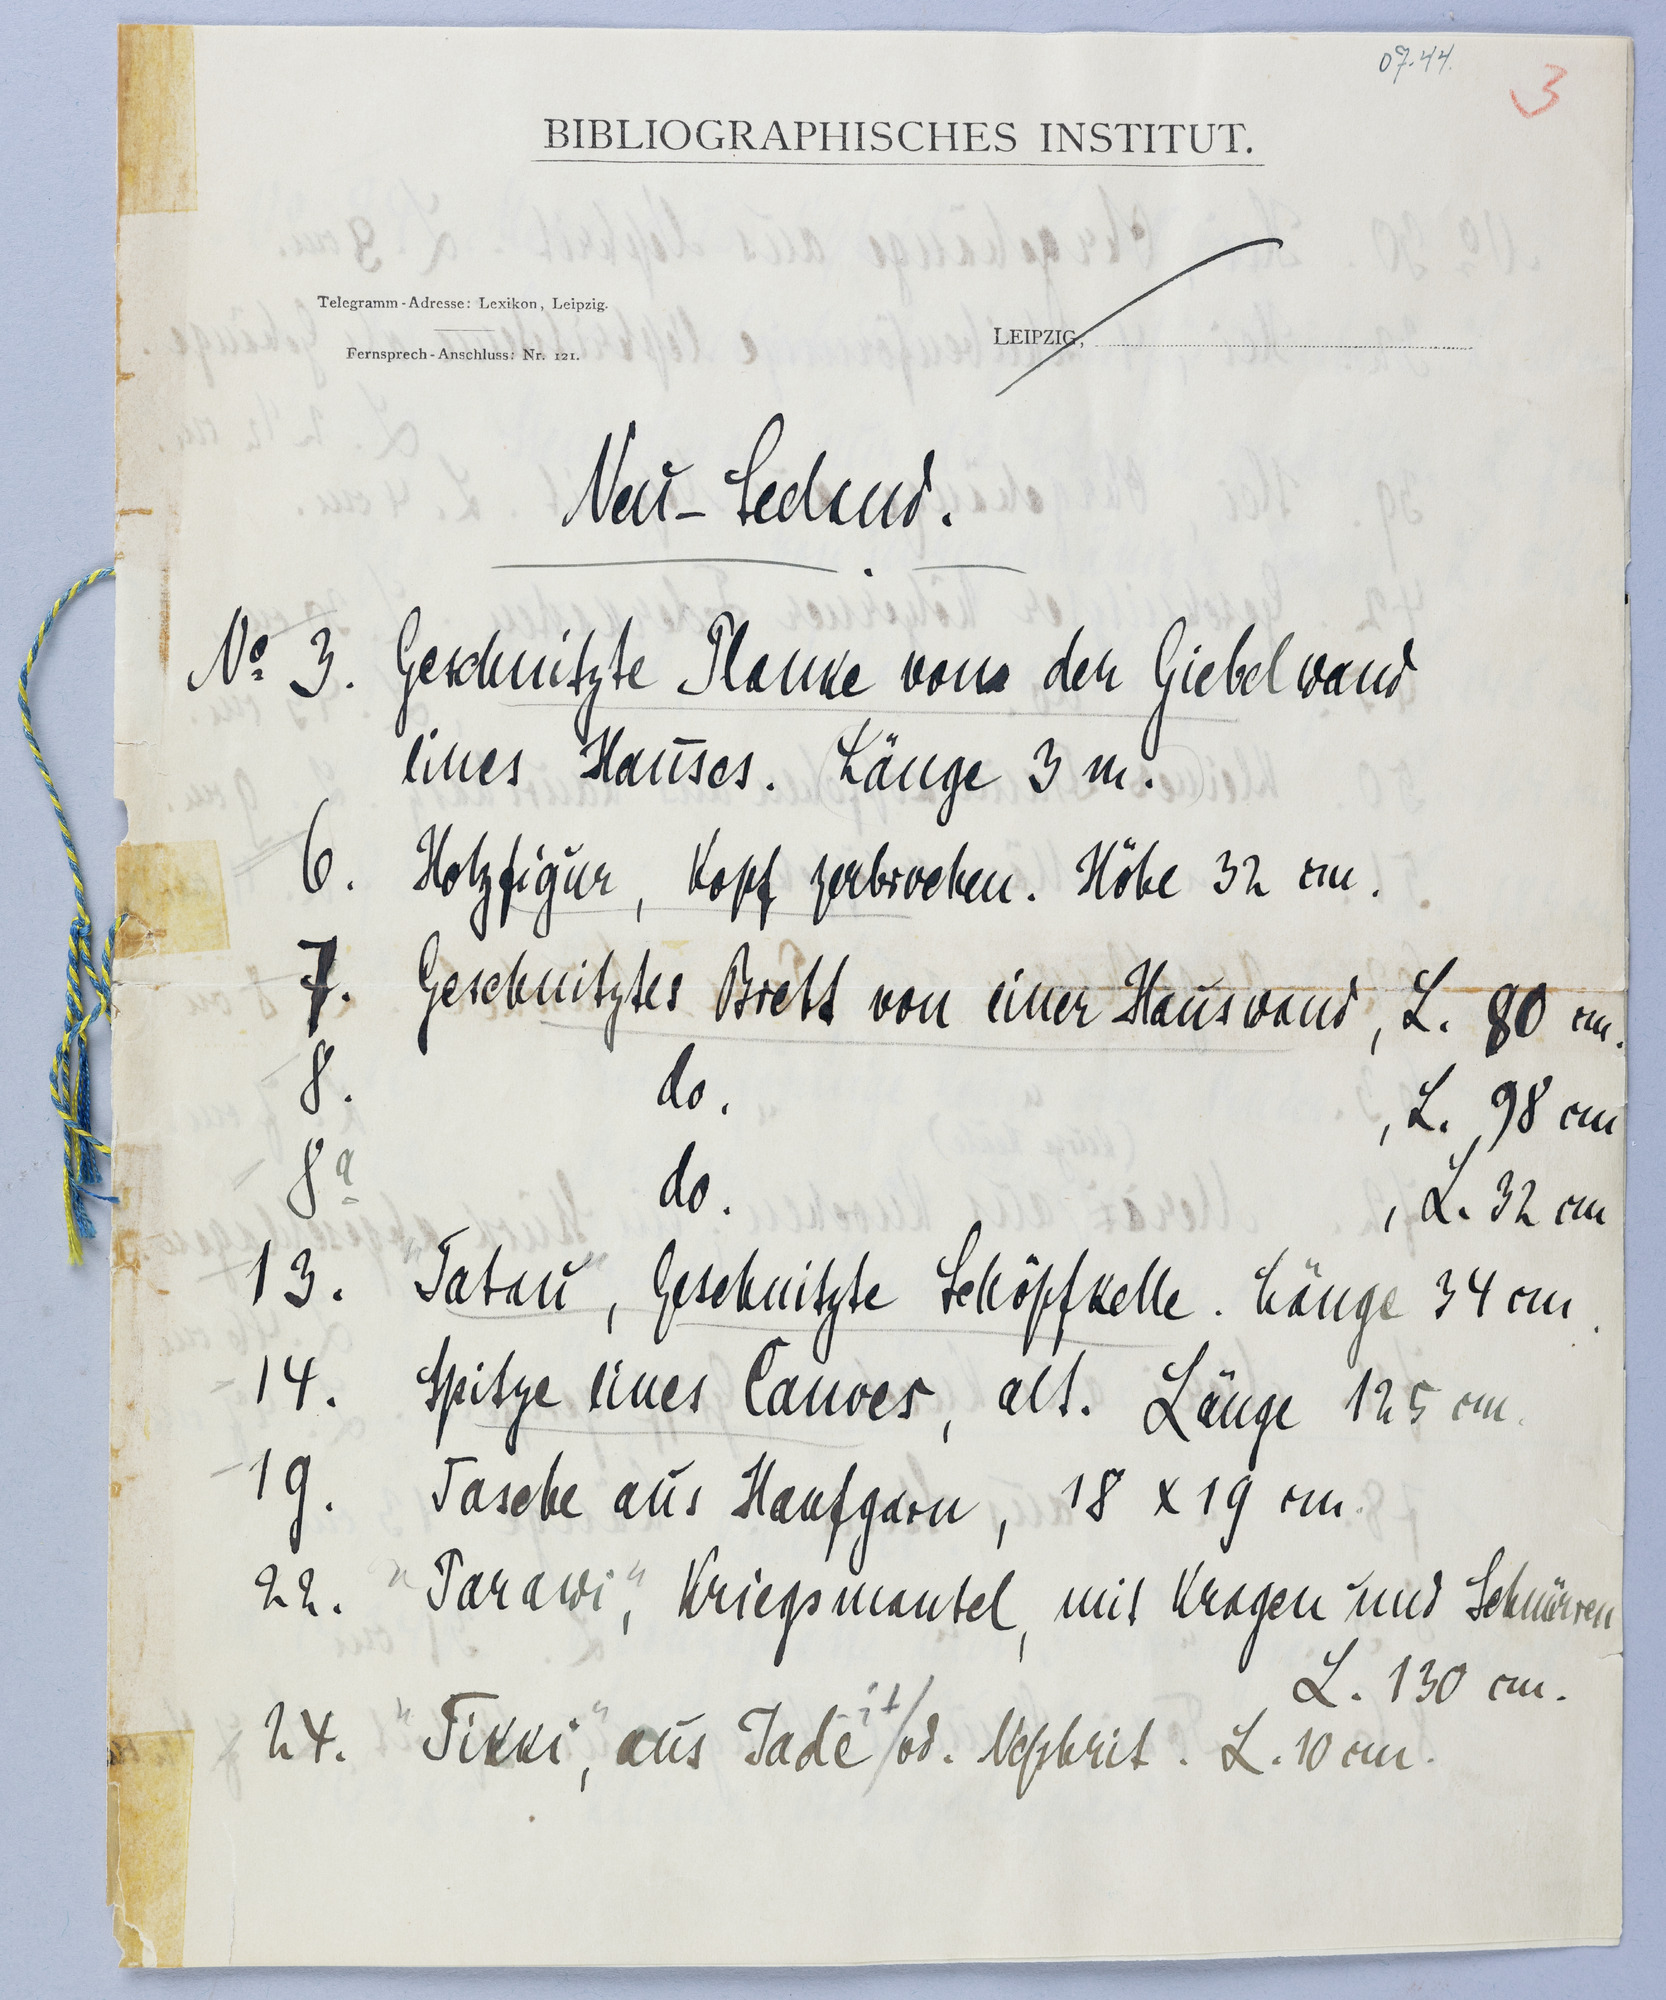 07.44.
3
BIBLIOGRAPHISCHES INSTITUT.
Telegramm-Adresse: Lexikon, Leipzig.
Fernsprech-Anschluss: Nr. 121.
LEIPZIG,
Neu-Seeland.
No 3. Geschnitzte Planke von der Giebelwand
eines Hauses. (Länge 3 m.)
6. Holzfigur, Kopf zerbrochen. Höhe 32 cm.
7. Geschnitztes Brett von einer Hauswand, L. 80 cm.
8. do. , L. 98 cm
8a do. , L. 32 cm
13. "Tatau", Geschnitzte Schöpfkelle. Länge 34 cm.
14. Spitze eines Canoes, alt. Länge 125 cm.
19. Tasche aus Hanfgarn, 18 x 19 cm.
22. "Parawi", Kriegsmantel, mit Kragen und Schnüren
L. 130 cm.
24. "Tikki", aus Jadeit/od. Nephrit. L. 10 cm.